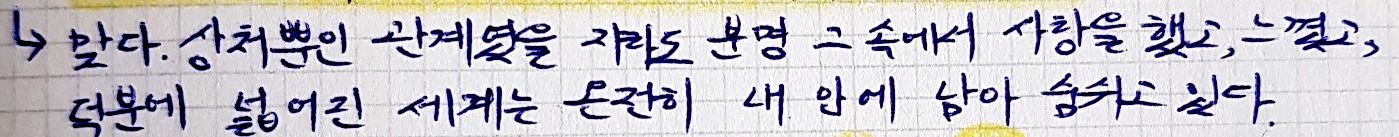 ↳ 맞다. 상처뿐인 관계였을 지라도 분명 그 속에서 사랑을 했고, 느꼈고,
덕분에 넓어진 세계는 온전히 내 안에 남아 숨쉬고 있다.